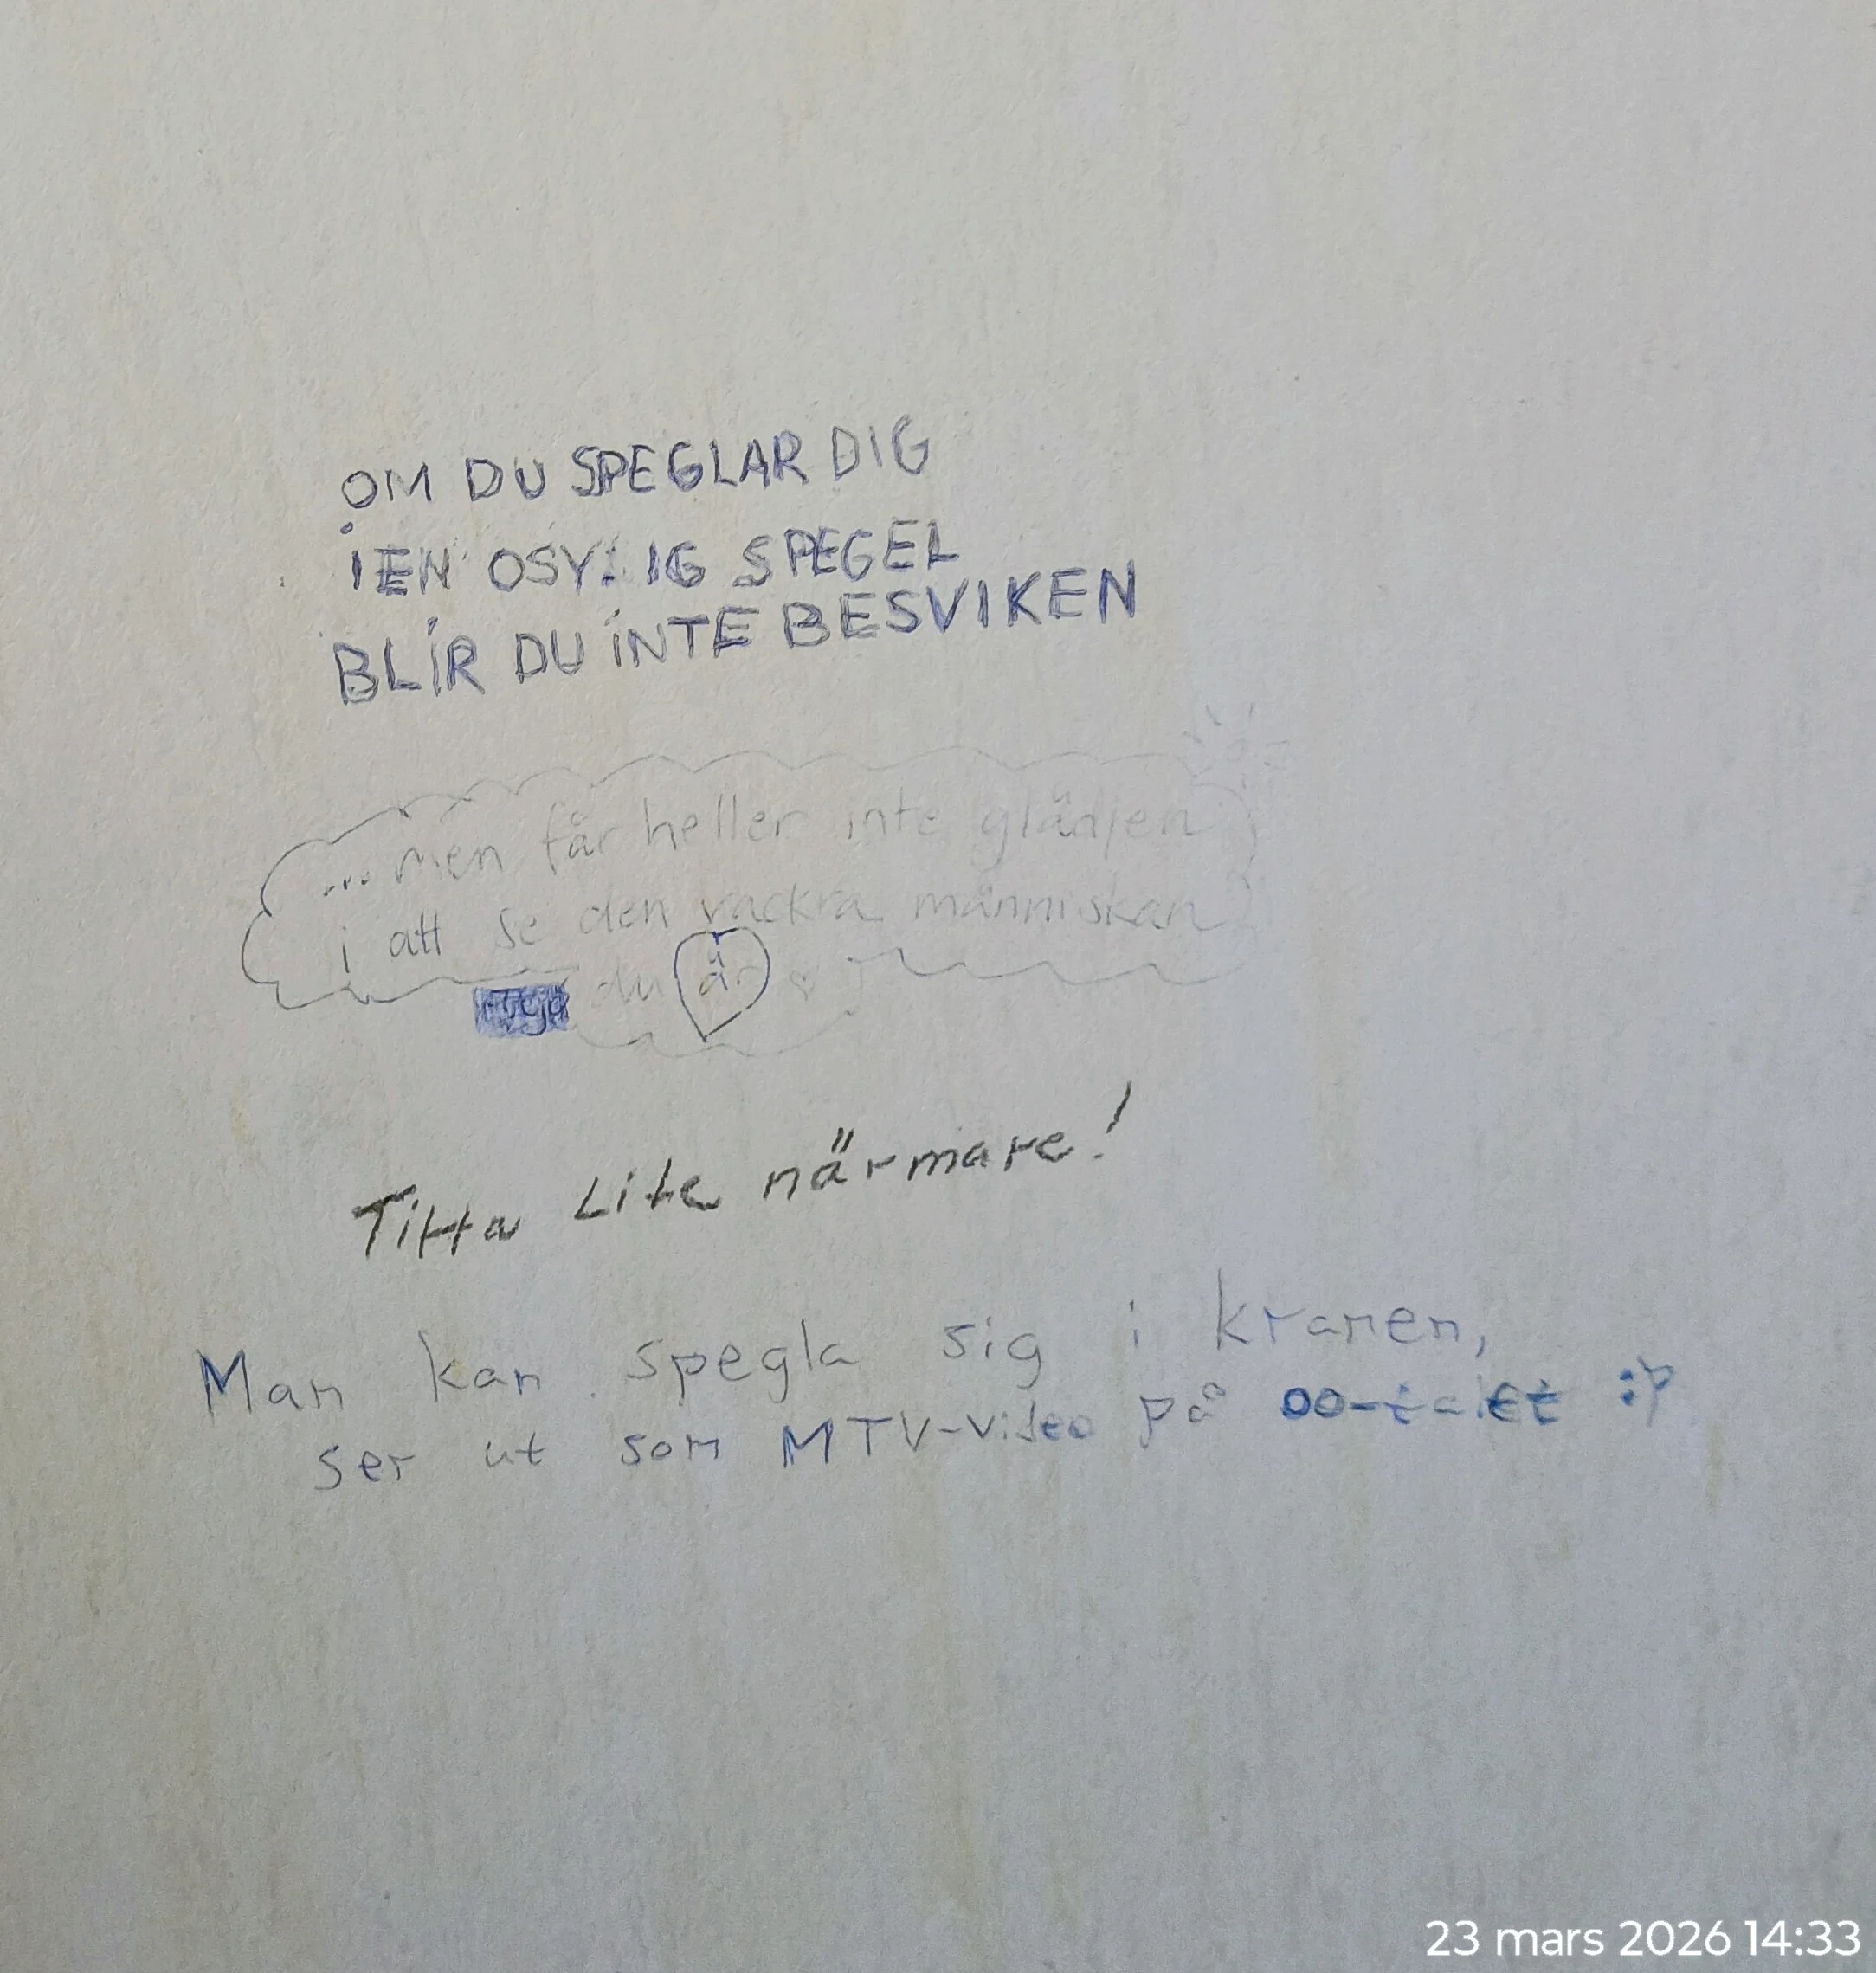 OM DU SPEGLAR DIG
I EN OSYNLIG SPEGEL
BLIR DU INTE BESVIKEN
...men får heller inte glädjen
i att se den vackra människan
du är
Titta Lite närmare!
Man kan spegla sig i kranen,
ser ut som MTV-video på 00-talet :P
23 mars 2026 14:33